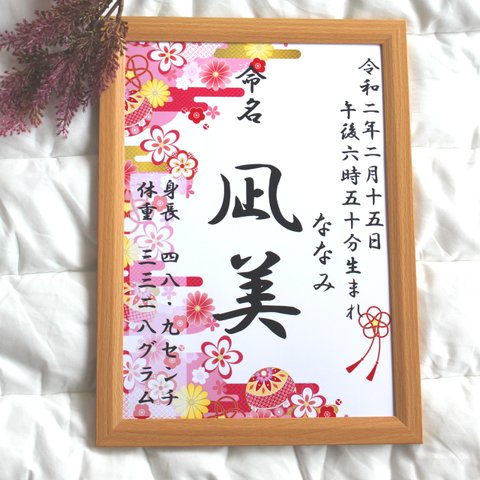 令和二年二月十五日
午後六時五十分生まれ
ななみ
命名
凪美
身長 四八・九センチ
体重 三三二八グラム